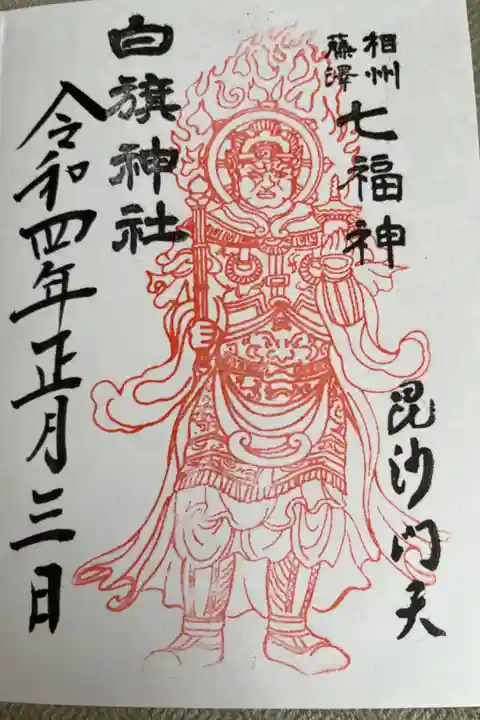 相州
藤澤
七福神
毘沙門天
白旗神社
令和四年正月三日